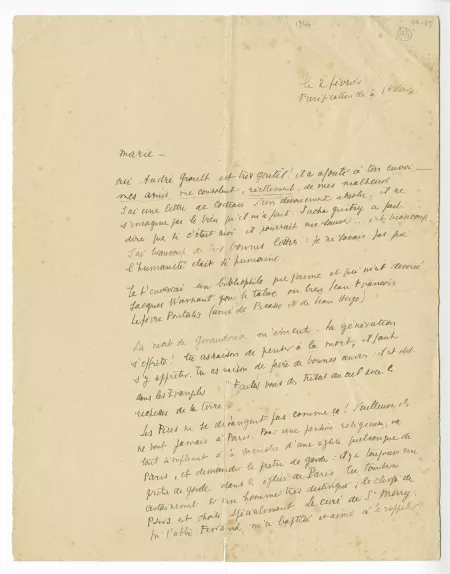 1944
le 2 février
Purification de la Ste Vierge
Marie –
oui André Groult est très gentil ! il a ajouté à ton envoi –
mes amis me consolent, réellement de mes malheurs
J'ai une lettre de Cocteau d'un dévouement absolu. il ne
s'imagine pas le bien qu'il m'a fait. Sacha Guitry a fait
dire que si c'était moi il pourrait me sauver ... et beaucoup
J'ai beaucoup de bonnes lettres : je ne savais pas que
l'humanité était si humaine.
Je t'enverrai un bibliophile que j'aime et qui m'est dévoué
Jacques Warnant pour le tableau ou bien Jean François
Lefèvre Pontalis (ami de Picasso et de Jean Hugo)
La mort de Giraudoux m'émeut. La génération
s'effrite ! tu as raison de penser à la mort, il faut
s'y apprêter. Tu as raison de faire de bonnes œuvres : il est dit
dans les Évangiles : " Faites vous des trésors au ciel avec les
richesses de la terre. "
Les Pères ne se dérangent pas comme ça ! D'ailleurs ils
ne vont jamais à Paris. Pour une pension religieuse, va
tout simplement à la sacristie d'une église quelconque de
Paris, et demande le prêtre de garde : il y a toujours un
prêtre de garde dans les églises de Paris. Tu tomberas
certainement sur un homme très distingué, le clergé de
Paris est choisi spécialement. Le curé de St Merry
fut l'abbé Ferrand, m'a baptisé et aime à le rappeler